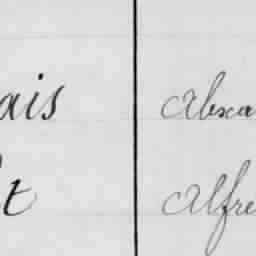 ais Alexa
t Alfre